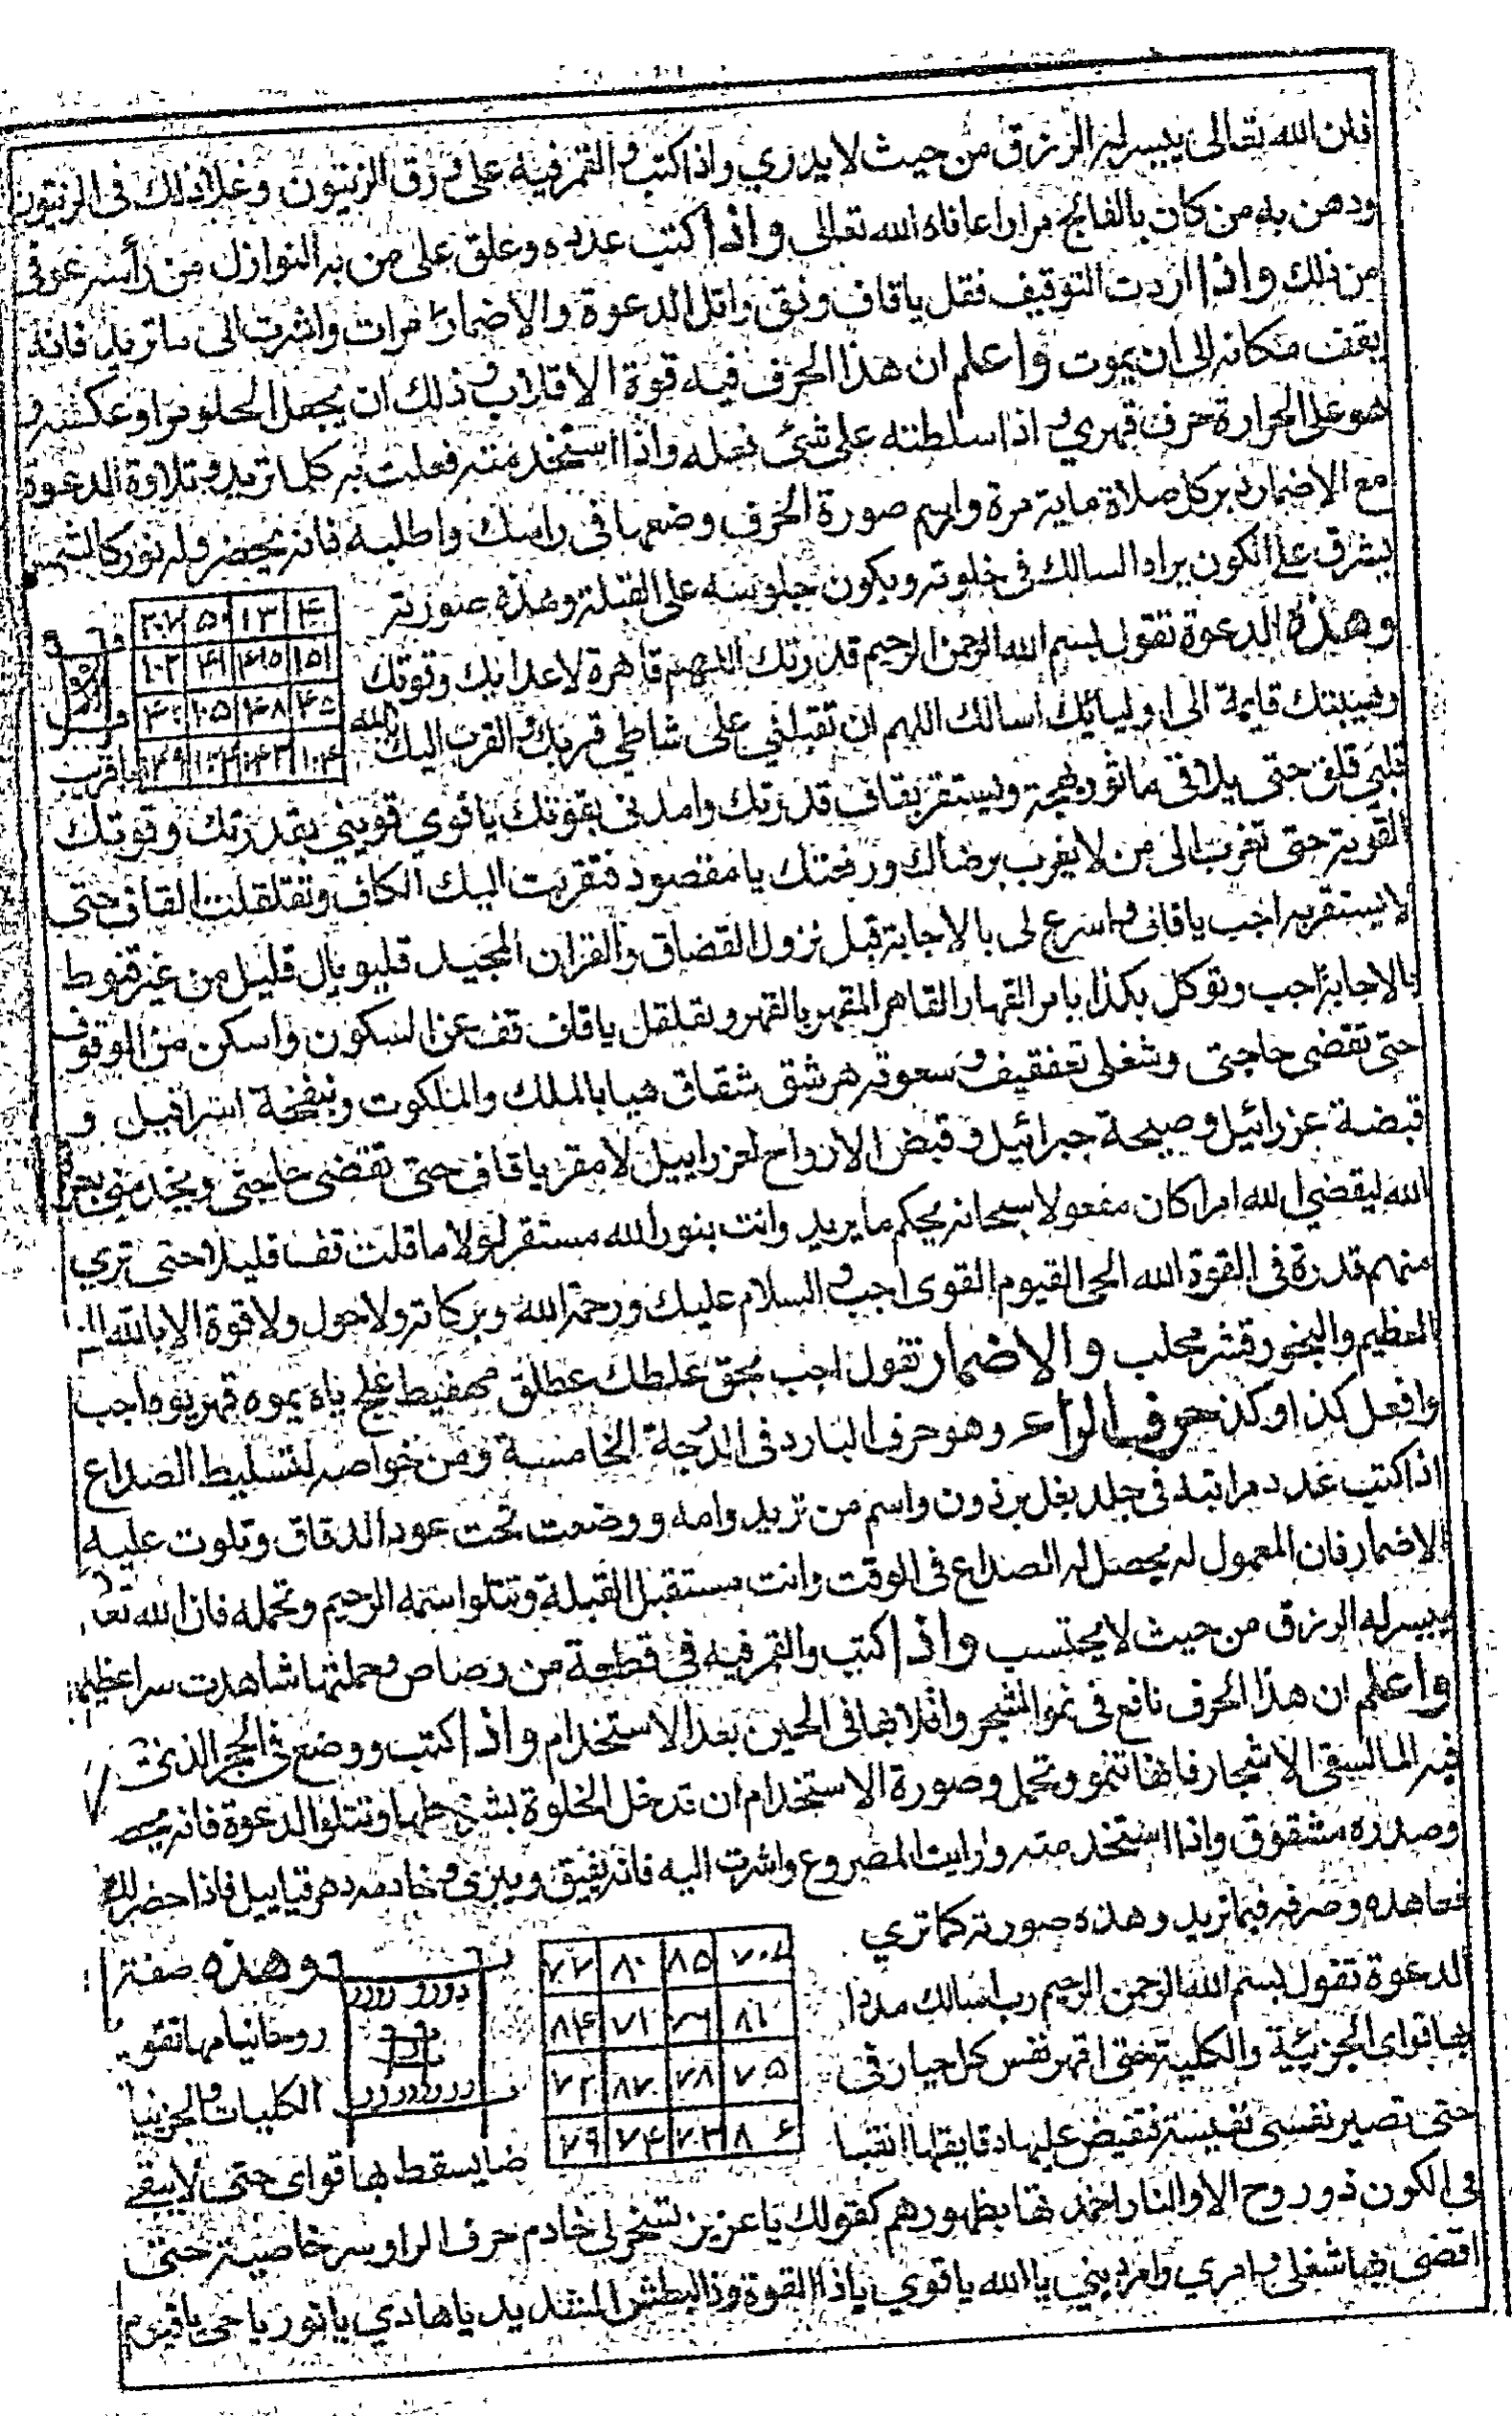 فان الله تعالى ييسر له الرزق من حيث لا يدري واذا كتب والقمر فيه على ورق الزيتون وغلا ذلك في الزيتون
ودهن به من كان بالفالج مرارا عافاه الله تعالى واذا كتب عدده وعلق على من به النوازل من رأسه عوفي
من ذلك واذا اردت التوقيف فقل يا قاف وثق واتل الدعوة والاضمار مرات واشرت الى ما تريد فانه
يقف مكانه الى ان يموت واعلم ان هذا الحرف فيه قوة الاقلاب وذلك ان يجعل الحلو مرا وعكسه و
هو على الحرارة حرف قهري اذا سلطته على شئ فعله واذا استخدمته فعلت به كلما تريد وتلاوة الدعوة
مع الاضمار دبر كل صلاة ماية مرة وارسم صورة الحرف وضعها في راسك واطلبه فانه يحضر وله نور كالشمس
يشرق على الكون يراه السالك في خلوته ويكون جلوسه على القبلة وهذه صورته
وهذه الدعوة تقول بسم الله الرحمن الرحيم قدرتك اللهم قاهرة لاعدايك وقوتك
وهيبتك قايمة الى اوليائك اسالك اللهم ان تقبلني على شاطي قربك والقرب اليك
قلبي قلق حتى يلاقي ما نوره بهجة ويستقر بقاف قدرتك وامدني بقوتك يا قوي قويني بقدرتك وقوتك
القوية حتى تقرب الى من لا يقرب برضاك ورحمتك يا مقصود فتقربت اليك الكاف وتقلقلت القاف حتى
لا يستقر به اجب يا قاف واسرع لي بالاجابة قبل نزول القضا ق والقران المجيد قليويال قليل من غير قنوط
بالاجابة اجب وتوكل بكذا يا سر القهار القاهر المقهر بالقهر وتقلقل يا قاف قف عن السكون واسكن من الوقوف
حتى تقضى حاجتي وشغلي تعفقيف وسعوقه هرشق شقاق هيا بالملك والملكوت وبنفخة اسرافيل و
قبضة عزرائيل وصيحة جبرائيل وقبض الارواح لعزراييل لا مقر يا قاف حتى تقضى حاجتي ويخدمني
الله ليقضي الله امرا كان مفعولا سبحانه يحكم ما يريد وانت بنور الله مستقر لولا ما قلت قف قليلا حتى تري
منهم قدرة في القوة الله الحي القيوم القوى اجب والسلام عليك ورحمة الله وبركاته ولا حول ولا قوة الا بالله
العظيم والبخور قشر محلب والاضمار تقول اجب بحق علطك عطلق مهفيط علج ياه يموه قهريوه اجب
وافعل كذا وكذا حرف الراء وهو حرف البارد في الدرجة الخامسة ومن خواصه لتسليط الصداع
اذا كتب عدد مراتبه في جلد بغل برذون واسم من تريد وامه ووضعت تحت عود الدقاق وتلوت عليه
الاضمار فان المعمول له يحصل له الصداع في الوقت وانت مستقبل القبلة وتتلوا اسمه الرحيم وتحمله فان الله تعا
ييسر له الرزق من حيث لا يحتسب واذا كتب والقمر فيه في قطعة من رصاص وحملتها شاهدت سرا عظيما
واعلم ان هذا الحرف نافع في نمو الشجر واقلابها في الحين بعد الاستخدام واذا كتب ووضع في الحجر الذي
فيه الما لسقي الاشجار فانها تنمو وتحمل وصورة الاستخدام ان تدخل الخلوة بشرطها وتتلوا الدعوة فانه
وصدره مشقوق واذا استخدمته ورايت المصروع واشرت اليه فانه يفيق ويبري وخادمه دهرقياييل فاذا حضر لك
فعاهده وصرفه فيما تريد وهذه صورته كما تري
وهذه صفة
الدعوة تقول بسم الله الرحمن الرحيم رب اسالك مددا
روحانيا مها تقوى
بها قواي الجزئية والكلية حتى اقهر نفس كل احيار في
الكليات والجزيا
حتى تصير نفسي نفيسة فتقبض عليها دقايقها انقبا
ضا يسقط بها قواى حتى لا يبقى
في الكون ذو روح الا والنار اخمدتها بظهورهم كقولك يا عزيز تسخر لي خادم حرف الرا وسر خاصيته حتى
اقضى فيها شغلي وامري وامر ديني يا الله يا قوي يا ذا القوة وذا البطش الشديد يا هادي يا نور يا حي يا قيوم